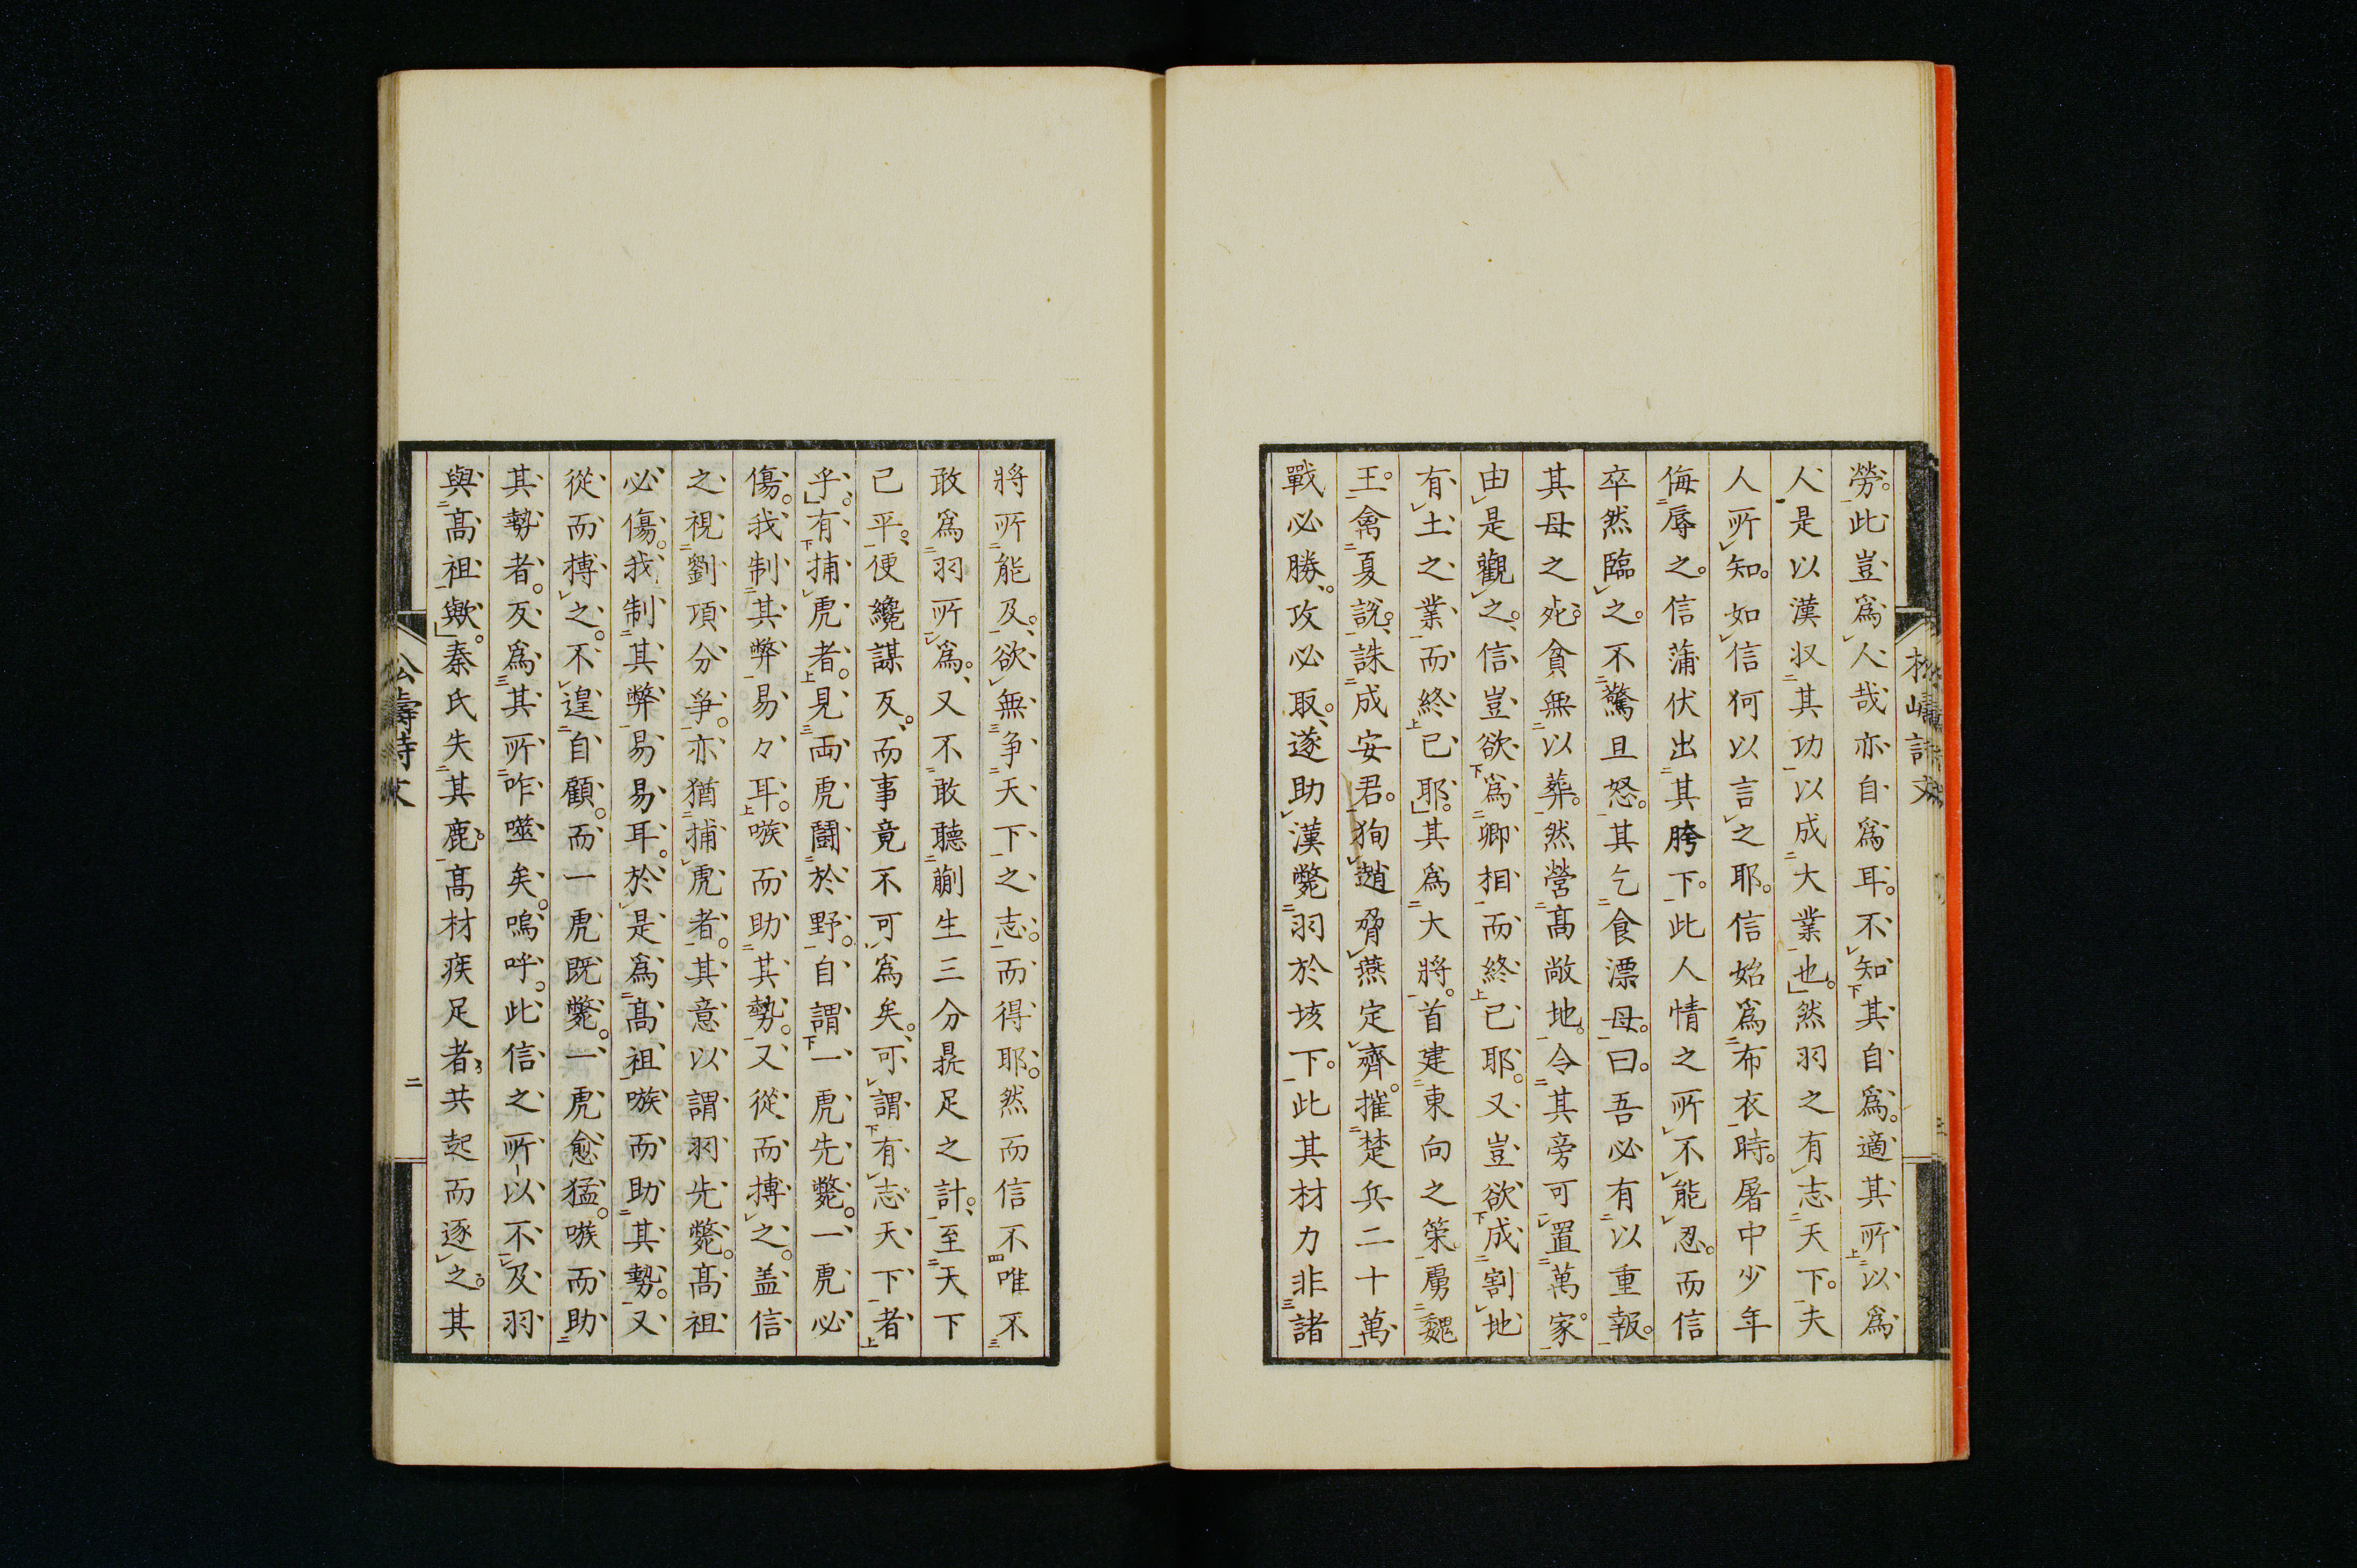 勞。此豈爲人哉亦自爲耳。不知其自爲。適其所以爲
人是以漢収其功以成大業也。然羽之有志天下。夫
人所知。如信何以言之耶。信始爲布衣時。屠中少年
侮辱之。信蒲伏出其胯下。此人情之所不能忍。而信
卒然臨之。不驚且怒。其乞食漂母。曰。吾必有以重報。
其母之死。貧無以葬。然營高敞地。令其旁可置萬家。
由是觀之。信豈欲爲卿相而終已耶。又豈欲成割地
有土之業而終已耶。其爲大將。首建東向之策。虜魏
王。禽夏說。誅成安君。狥趙脅燕定齊。摧楚兵二十萬
戰必勝。攻必取。遂助漢斃羽於垓下。此其材力非諸
將所能及。欲無争天下之志。而得耶。然而信不唯不
敢爲羽所爲。又不敢聽蒯生三分鼎足之計。至天下
已平。便纔謀反。而事竟不可爲矣。可謂有志天下者
乎。有捕虎者。見両虎鬪於野。自謂一虎先斃。一虎必
傷。我制其弊易々耳。嗾而助其勢。又從而搏之。盖信
之視劉項分爭。亦猶捕虎者。其意以謂羽先斃。高祖
必傷。我制其弊易易耳。於是爲高祖嗾而助其勢。又
從而搏之。不遑自顧。而一虎既斃。一虎愈猛。嗾而助
其勢者。反爲其所咋噬矣。嗚呼。此信之所以不及羽
與高祖歟。秦氏失其鹿。高材疾足者共起而逐之。其
二